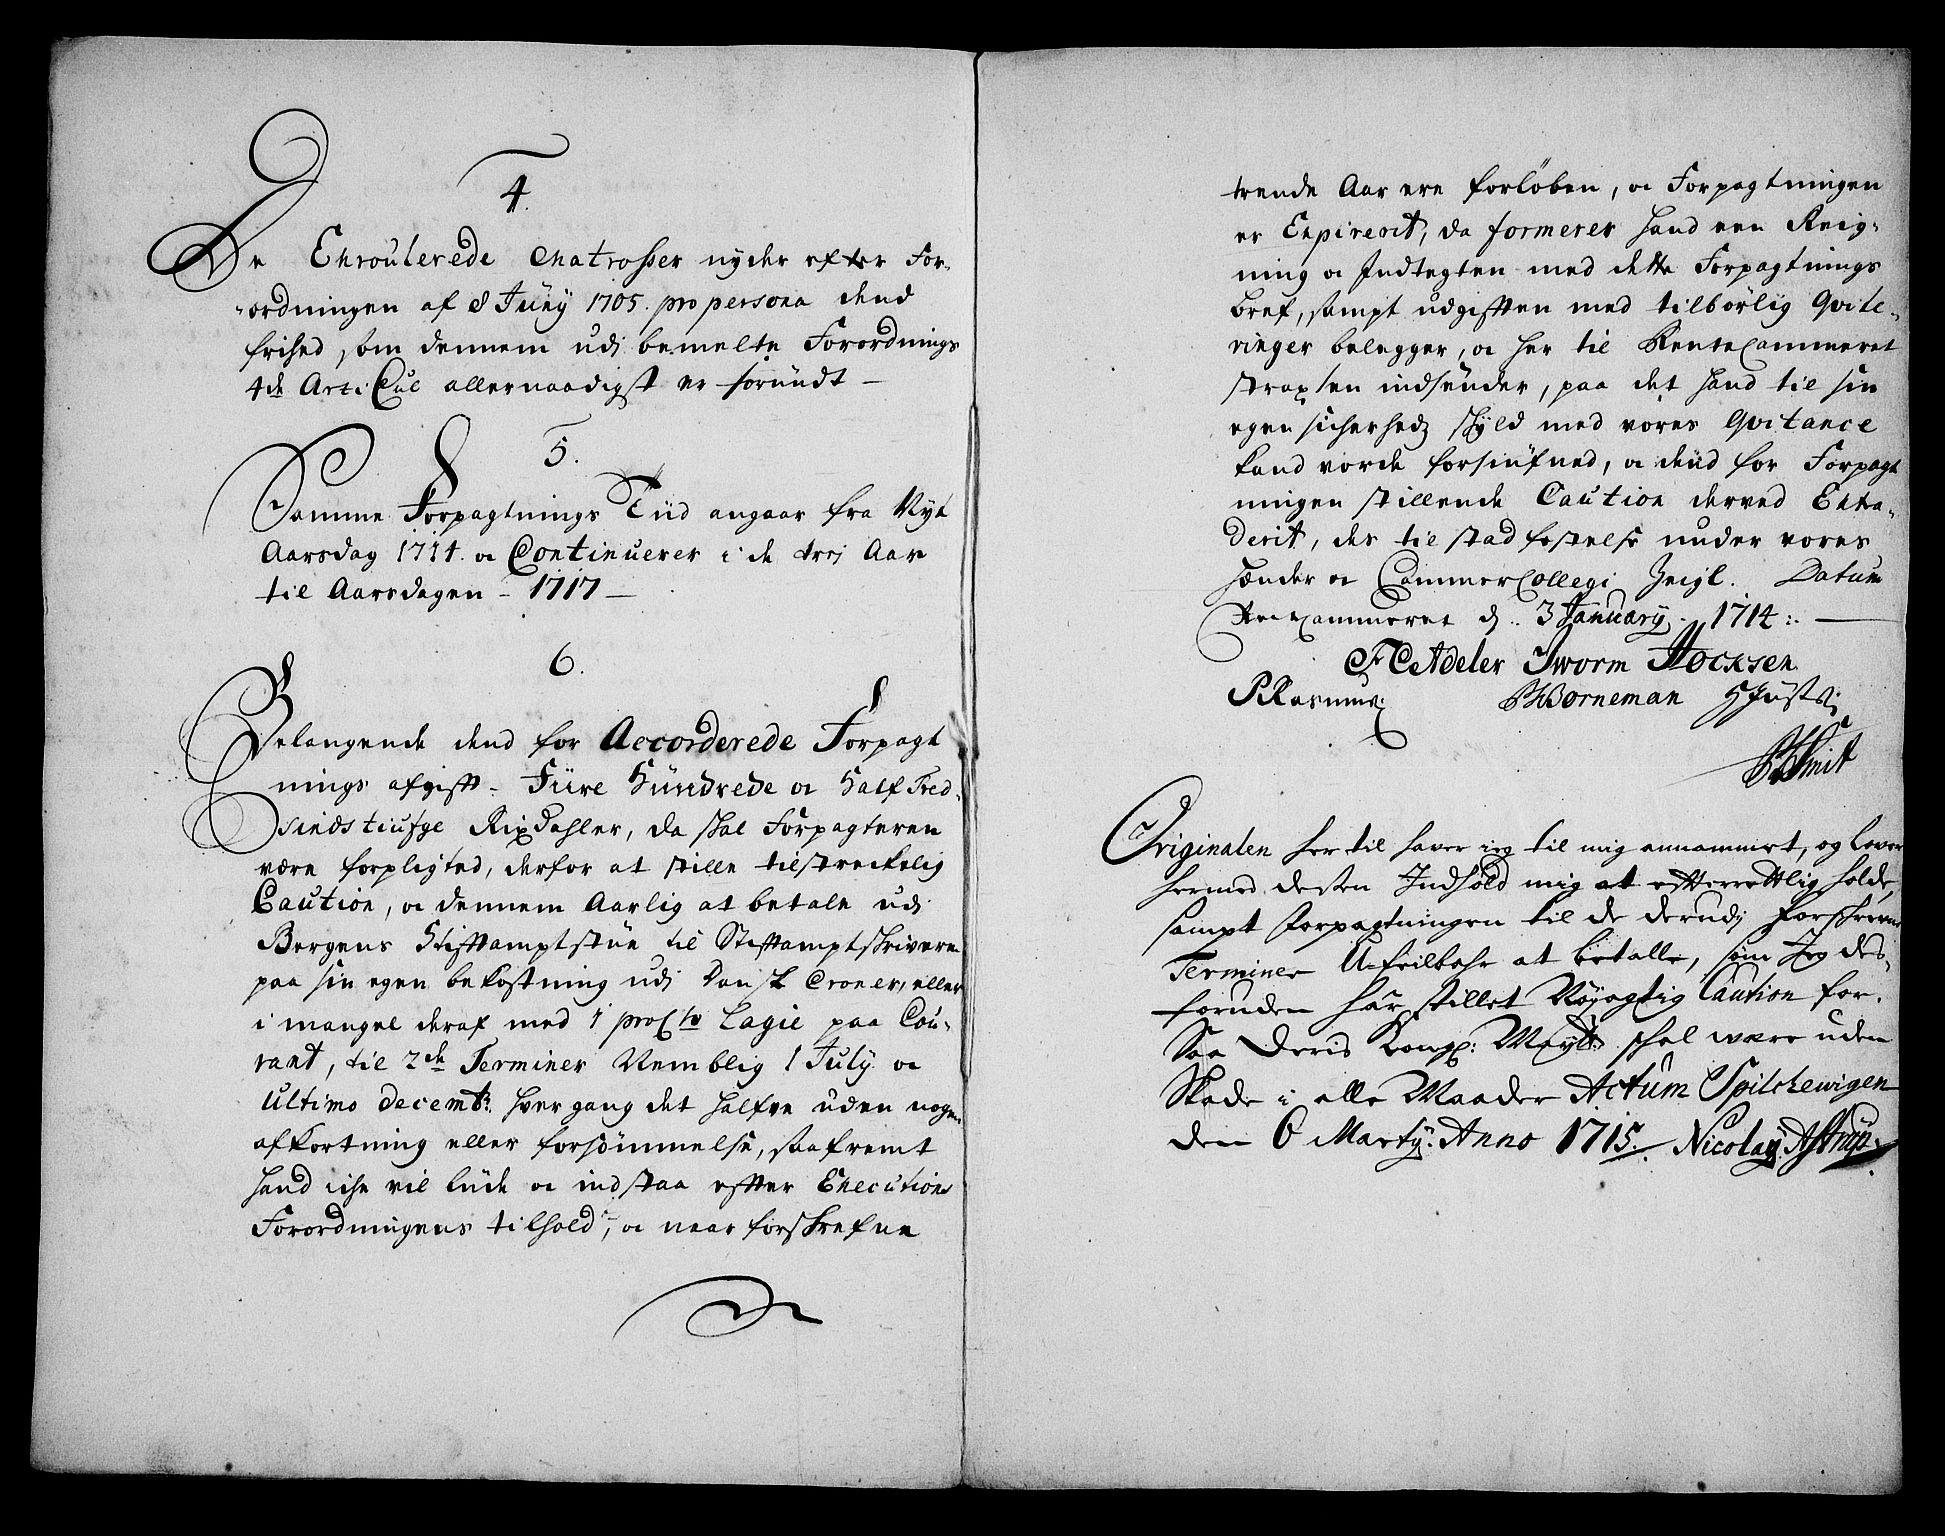 4.
De Enroulerede Matrosser nyder efter For-
ordningen af 8 Juny 1705. pro persona dend
frihed, som dennem udi bemelte Forordnings
4de Articul allernaadigst er forundt —
5.
Samme Forpagtnings Tiid angaar fra Nyt
Aarsdag 1714. oc Continuerer i de trej Aar
til Aarsdagen - 1717 —
6.
Belangende dend for Accorderede Forpagt
nings afgifft - Fiire Hundrede oc Half Tred-
sindstiufge Rixdahler, da skal Forpagteren
være forpligted, derfor at stille tilstreckelig
Caution, oc dennem Aarlig at betale udi
Bergens Stifftamptstue til Stifftamptskriveren
paa sin egen bekostning udi Dansk Croner, eller
i mangel deraf med 1 pro Cto Lagie paa Cou-
rant, til 2de Terminer Nemblig 1 July oc
ultimo decembr: hver gang det halfve uden nogen
afkortning eller forsømmelse, saafremt
hand iche vil liide oc indstaa effter Executions
Forordningens tilhold, oc naar forskrefne
trende Aar ere forløben, oc Forpagtningen
er Expirerit, da formerer hand een Reig-
ning oc Indtegten med dette Forpagtnings
bref, sampt udgifften med tilbørlig Qvite-
ringer belegger, oc her til RenteCammeret
straxsen indsender, paa det hand til sin
egen sicherhedz skyld med vores Qvitance
kand vorde forsiufned, oc dend for Forpagt
ningen stillende Caution derved Extra-
derit, des til stadfestelse under vores
hænder oc CammerCollegi Zeigl. Datum
RenteCammeret d. 3 January. 1714:. —
FC Adeler Jworm Stocksen
P Rasmus: Worneman H Just:
Smit
Originalen her til haver ieg til mig annammet, og lover
hermed desen Indhold mig at effterrettlig holde,
sampt Forpagtningen til de derudj forskrevne
Terminer U-feilbahr at betalle, som Jeg des-
foruden har stillet Nøyagtig Caution for.
Saa Deris Kongl: Mayt: skal være uden
Skade i alle Maader Actum Spilchewigen
den 6 Marty: Anno 1715. Nicolay Astrup.